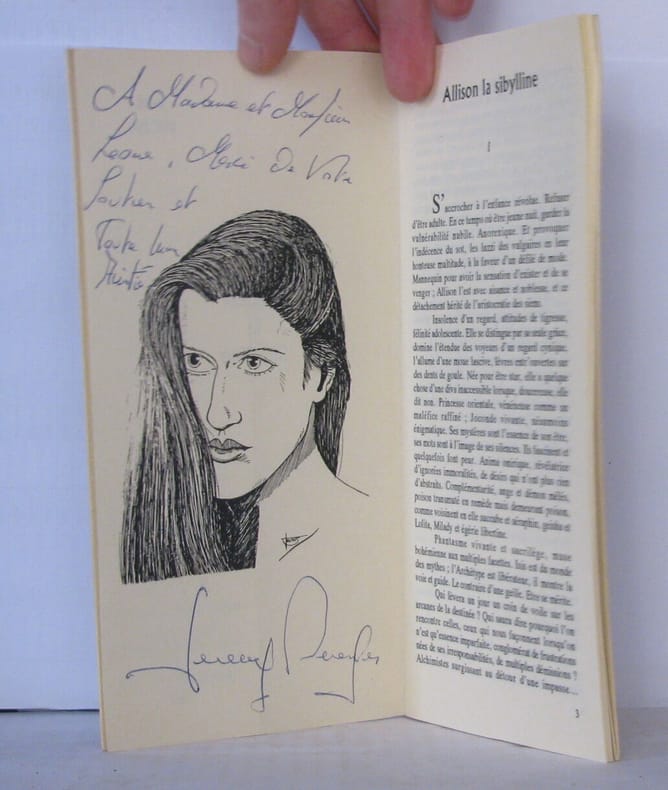 A Madame et Monsieur
Merci De Votre
Soutien et
Toute mon
Amitié
Allison la sibylline
I
S'accrocher à l'enfance révolue. Refuser
d'être adulte. En ce temps où être jeune nuit, garder la
vulnérabilité nubile. Anorexique. Et provoquer
l'indécence du sot, les lazzi des vulgaires en leur
honteuse multitude, à la faveur d'un défilé de mode.
Mannequin pour avoir la sensation d'exister et de se
venger ; Allison l'est avec aisance et noblesse, et ce
détachement hérité de l'aristocratie des siens.
Insolence d'un regard, attitudes de tigresse,
félinité adolescente. Elle se distingue par sa seule grâce,
domine l'étendue des voyeurs d'un regard cynique,
l'allume d'une moue lascive, lèvres entr'ouvertes sur
des dents de goule. Née pour être star, elle a quelque
chose d'une diva inaccessible lorsque, doucereuse, elle
dit non. Princesse orientale, vénéneuse comme un
maléfice raffiné ; Joconde vivante, néanmoins
énigmatique. Ses mystères sont l'essence de son être,
ses mots sont à l'image de ses silences. Ils fascinent et
quelquefois font peur. Anima onirique, révélatrice
d'ignorées immoralités, de désirs qui n'ont plus rien
d'abstraits. Complémentarité, ange et démon mêlés,
poison transmuté en remède mais demeurant poison,
comme voisinent en elle succube et séraphin, geisha et
Lolita, Milady et égérie libertine.
Phantasme vivante et sacrilège, muse
bohémienne aux multiples facettes. Isis est du monde
des mythes ; l'Archétype est libérateur, il montre la
voie et guide. Le contraire d'une geôle. Etre se mérite.
Qui lèvera un jour un coin de voile sur les
arcanes de la destinée ? Qui saura dire pourquoi l'on
rencontre celles, ceux qui nous façonnent lorsqu'on
n'est qu'essence imparfaite, conglomérat de frustrations
nées de ses irresponsabilités, de multiples démissions ?
Alchimistes surgissant au détour d'une impasse...
3